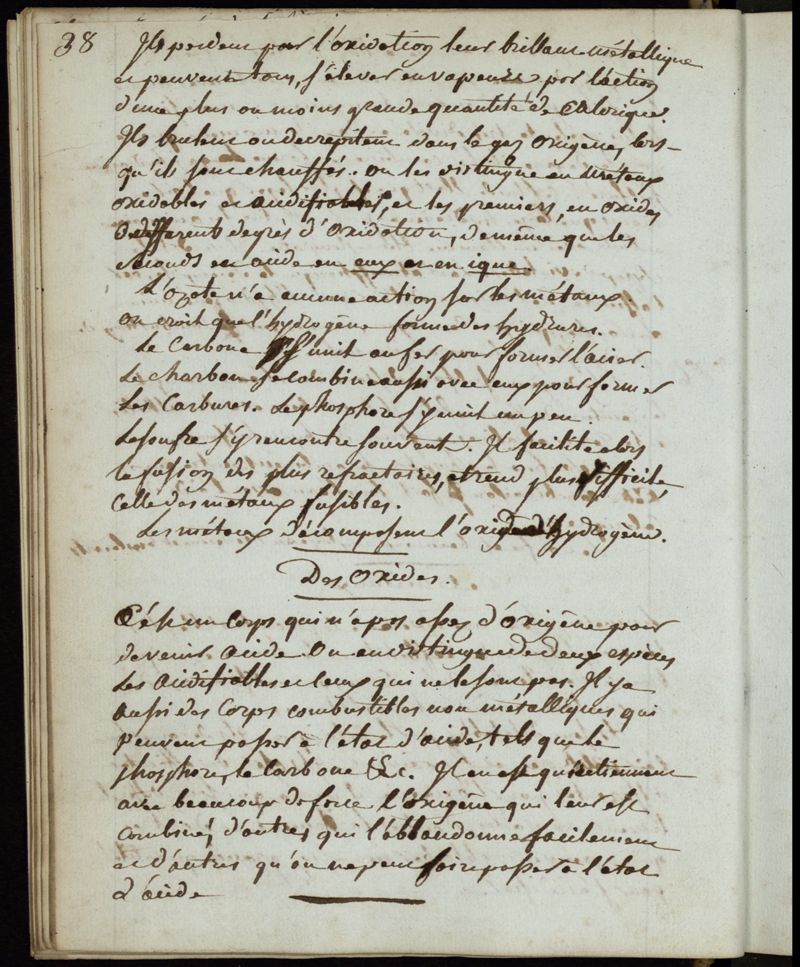 38
Ils perdent par l'oxidation leur brillant métallique
et peuvent tous, s'élever en vapeurs par l'action
d'une plus ou moins grande quantité de Calorique.
Ils brulent ou decrepitent dans le gaz oxigène, lors-
qu'ils sont chauffés. On les distingue en métaux
oxidables et acidifiables, et les premiers, en oxides
de different degrès d'oxidation, de même que les
seconds en acide en eux et en ique.
L'azote n'a aucune action sur les métaux.
On croit que l'hydrogène forme des hydrures.
Le Carbone s'unit au fer pour former l'acier.
Le charbon se combine aussi avec eux pour former
les Carbures. Le phosphore s'y unit un peu.
Le soufre s'y rencontre souvent. Il facilite alors
la fusion des plus refractaires, et rend plus difficile
celle des métaux fusibles.
Les métaux décomposent l'oxide d'hydrogène.
Des Oxides.
C'est un Corps qui n'a pas assez d'oxigène pour
devenir acide. On en distingue de deux espèces
les acidifiables et ceux qui ne le sont pas. Il y a
aussi des Corps combustibles non métalliques qui
peuvent passer à l'état d'acide, tels que le
phosphore, le Carbone &c. Il en est qui retiennent
avec beaucoup de force l'oxigène qui leur est
combiné, d'autres qui l'abbandonne facilement
et d'autres qu'on ne peut faire passer à l'état
d'acide